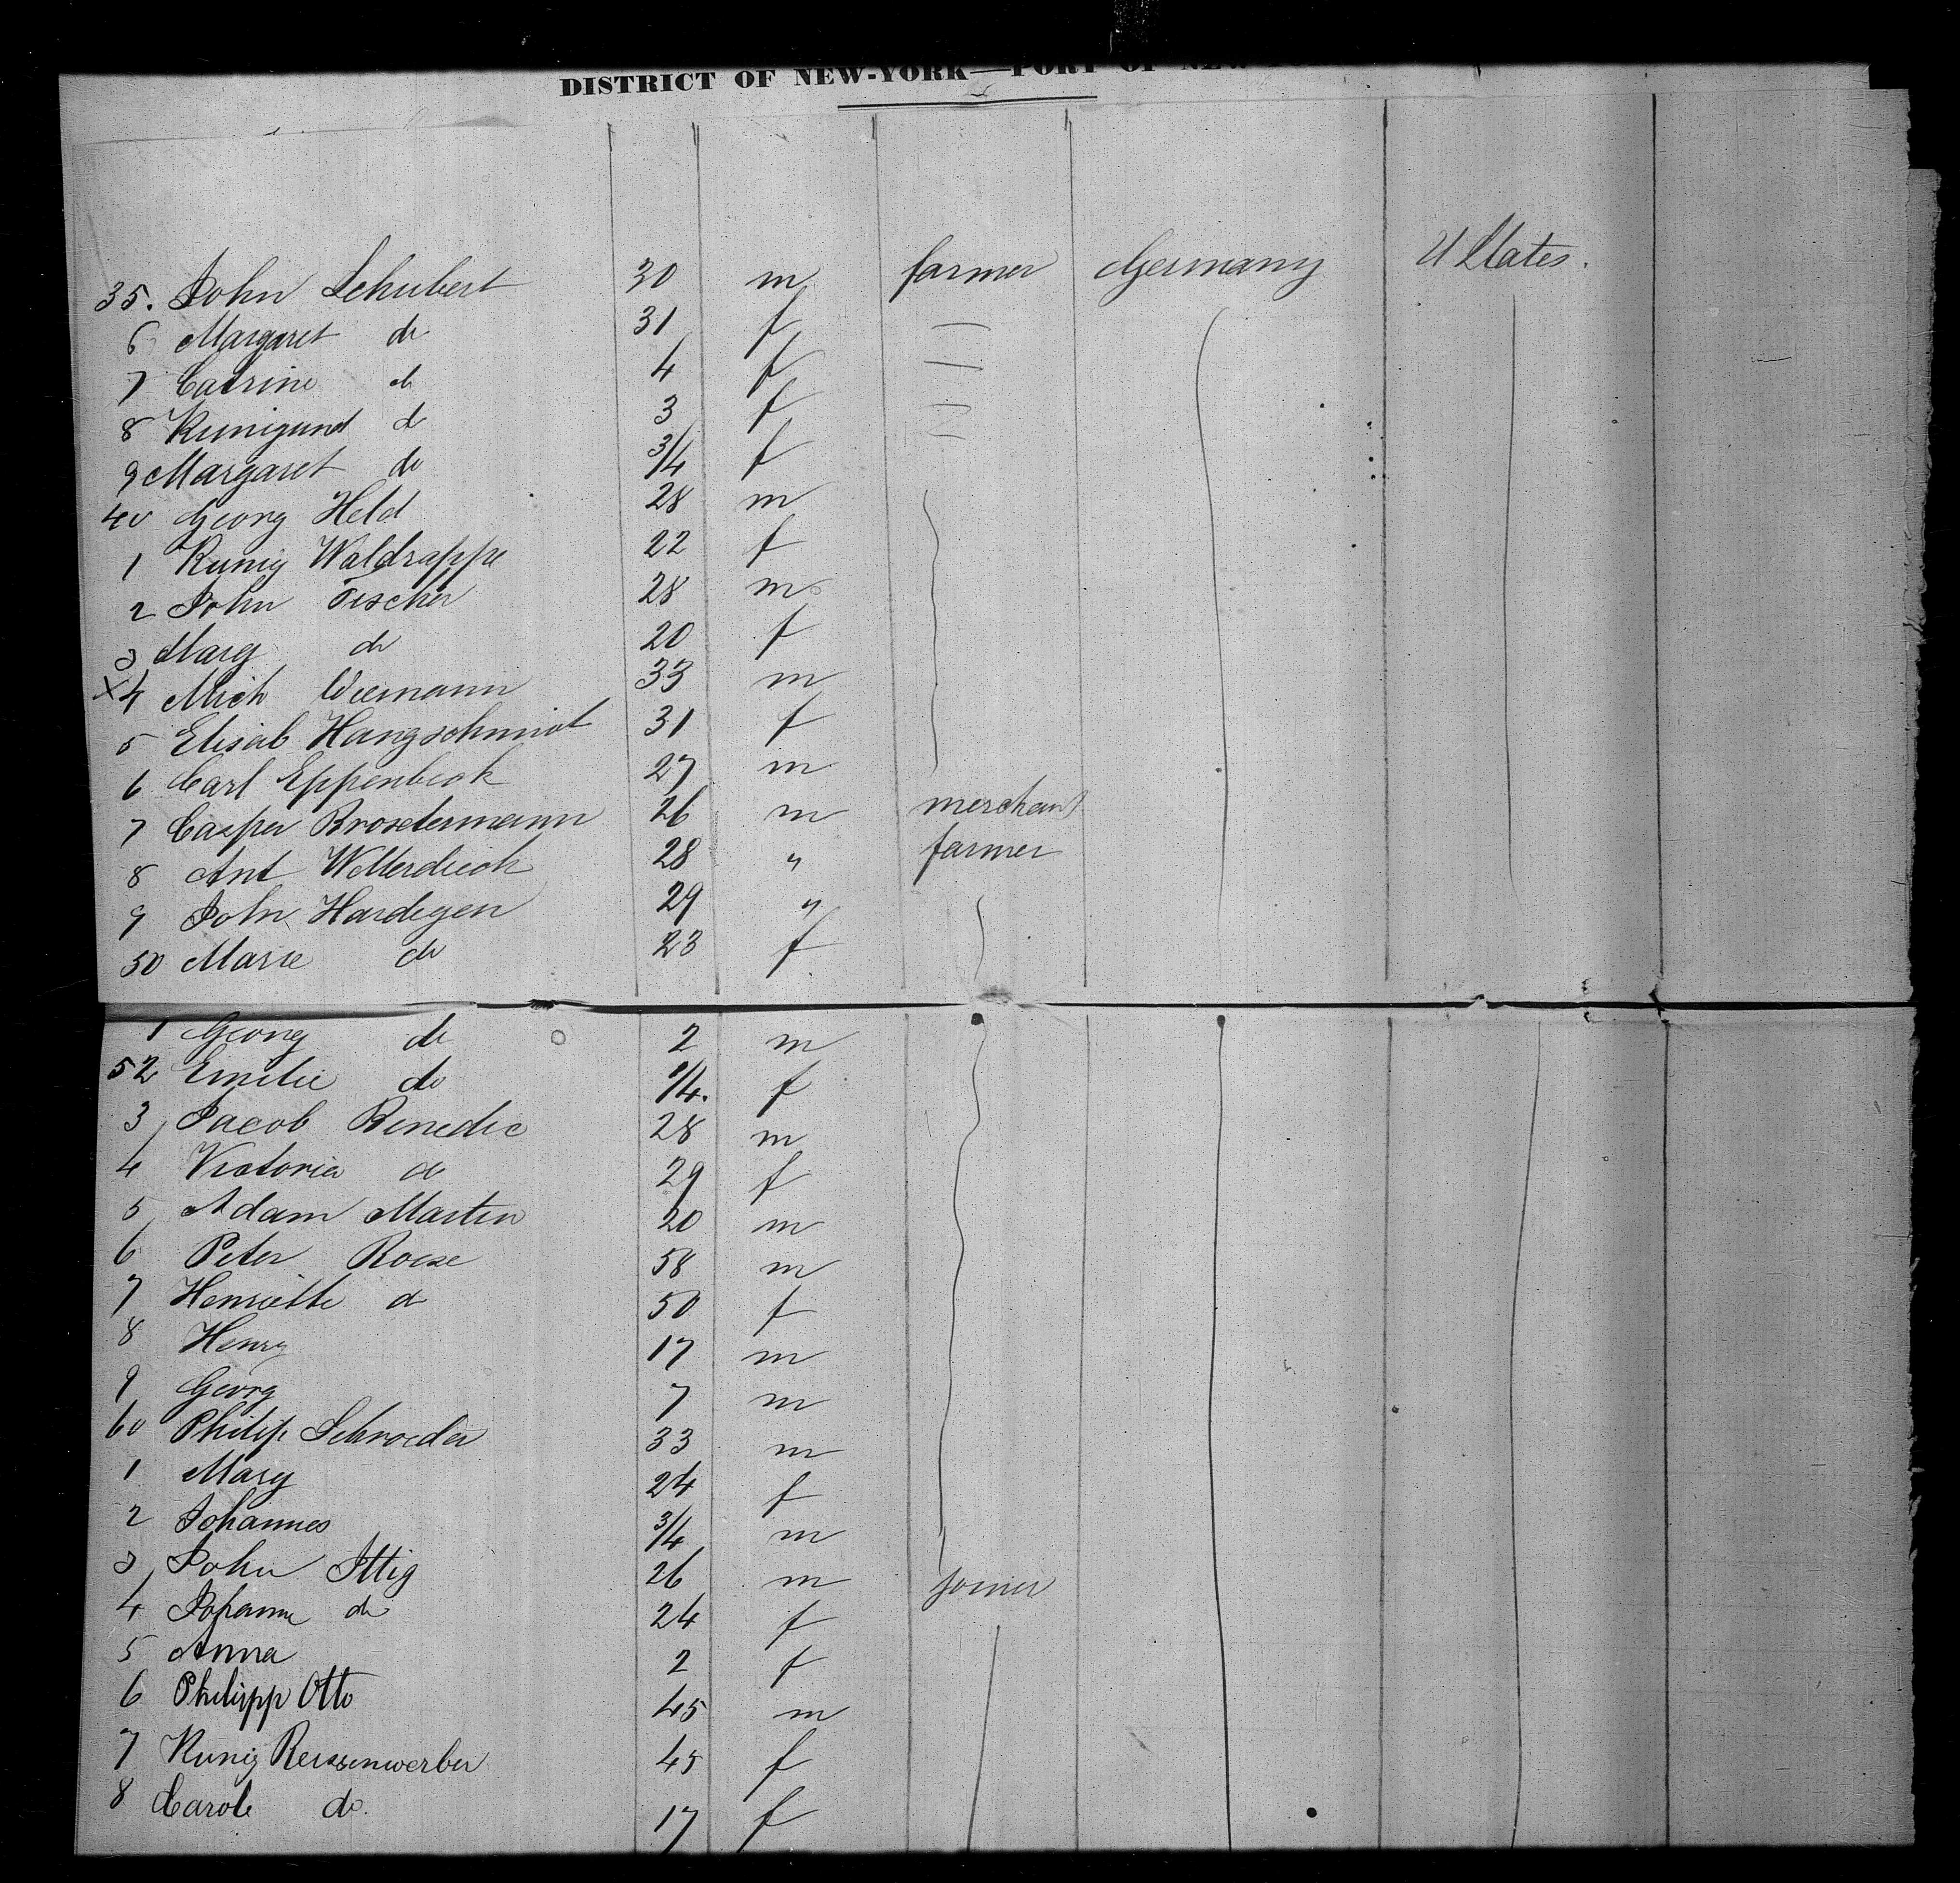 DISTRICT OF NEW-YORK—PORT OF NEW
35. John Schubert 30 m farmer Germany U States.
6 Margaret do 31 f —
7 Catrine do 4 f —
8 Kunigund do 3 f —
9 Margaret do 3/4 f —
40 Georg Held 28 m
1 Kunig Waldrappe 22 f
2 John Fischer 28 m
3 Marg do 20 f
x4 Mich Wiemann 33 m
5 Elisab Hangschmidt 31 f
6 Carl Eppenbeck 27 m
7 Casper Brostermann 26 m merchant
8 Ant Wellerdieck 28 " farmer
9 John Hardegen 29 "
50 Marie do 23 f
1 Georg do 2 m
52 Emilie do /4. f
3 Jacob Benedic 28 m
4 Victoria do 29 f
5 Adam Martin 20 m
6 Peter Roese 58 m
7 Henriette do 50 f
8 Henry 17 m
9 Georg 7 m
60 Philip Schroeder 33 m
1 Mary 24 f
2 Johannes 3/4 m
3 John Ittig 26 m joiner
4 Johanne do 24 f
5 Anna 2 f
6 Philipp Otto 45 m
7 Kunig Reissenweber 45 f
8 Carole do. 17 f